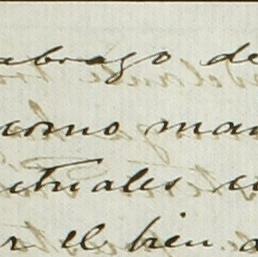 abrazo de
como ma
ctuales c
r el bien d